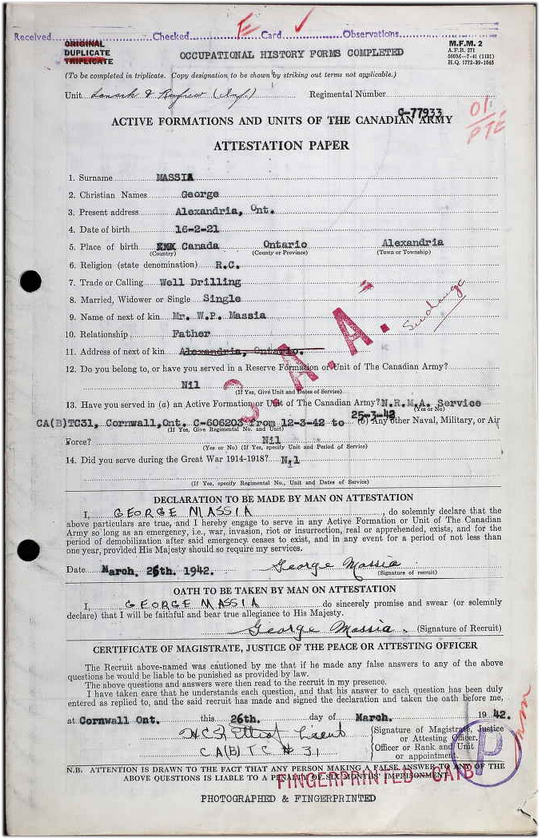 Received Checked F Card Observations
ORIGINAL
DUPLICATE
TRIPLICATE
OCCUPATIONAL HISTORY FORMS COMPLETED
M.F.M. 2
A.F.B. 271
500M—7-41 (1131)
H.Q. 1772-39-1045
(To be completed in triplicate. Copy designation to be shown by striking out terms not applicable.)
Unit Lanark & Renfrew (Inf.) Regimental Number
C-77933
ACTIVE FORMATIONS AND UNITS OF THE CANADIAN ARMY
01
PTE
ATTESTATION PAPER
1. Surname MASSIA
2. Christian Names George
3. Present address Alexandria, Ont.
4. Date of birth 16-2-21
5. Place of birth Canada Ontario Alexandria
(Country) (County or Province) (Town or Township)
6. Religion (state denomination) R.C.
7. Trade or Calling Well Drilling
8. Married, Widower or Single Single
9. Name of next of kin Mr. W.P. Massia
10. Relationship Father
11. Address of next of kin Alexandria, Ontario.
S.A.A.
12. Do you belong to, or have you served in a Reserve Formation or Unit of The Canadian Army?
Nil
(If Yes, Give Unit and Dates of Service)
13. Have you served in (a) an Active Formation or Unit of The Canadian Army? N.R.M.A. Service
(Yes or No)
25-3-42
CA(B)TC31, Cornwall, Ont. C-606203 from 12-3-42 to (b) Any other Naval, Military, or Air
(If Yes, Give Regimental No. and Unit)
Force? Nil
(Yes or No) (If Yes, specify Unit and Period of Service)
14. Did you serve during the Great War 1914-1918? Nil
(If Yes, specify Regimental No., Unit and Dates of Service)
DECLARATION TO BE MADE BY MAN ON ATTESTATION
I, GEORGE MASSIA, do solemnly declare that the
above particulars are true, and I hereby engage to serve in any Active Formation or Unit of The Canadian
Army so long as an emergency, i.e., war, invasion, riot or insurrection, real or apprehended, exists, and for the
period of demobilization after said emergency ceases to exist, and in any event for a period of not less than
one year, provided His Majesty should so require my services.
Date March, 26th. 1942. George Massia
(Signature of recruit)
OATH TO BE TAKEN BY MAN ON ATTESTATION
I, GEORGE MASSIA do sincerely promise and swear (or solemnly
declare) that I will be faithful and bear true allegiance to His Majesty.
George Massia. (Signature of Recruit)
CERTIFICATE OF MAGISTRATE, JUSTICE OF THE PEACE OR ATTESTING OFFICER
The Recruit above-named was cautioned by me that if he made any false answers to any of the above
questions he would be liable to be punished as provided by law.
The above questions and answers were then read to the recruit in my presence.
I have taken care that he understands each question, and that his answer to each question has been duly
entered as replied to, and the said recruit has made and signed the declaration and taken the oath before me,
at Cornwall Ont. this 26th. day of March. 1942.
Signature of Magistrate, Justice
or Attesting Officer,
Officer or Rank and Unit
or appointment
CA(B)TC #31
P
N.B. ATTENTION IS DRAWN TO THE FACT THAT ANY PERSON MAKING A FALSE ANSWER TO ANY OF THE
ABOVE QUESTIONS IS LIABLE TO A PENALTY OF SIX MONTHS' IMPRISONMENT
FINGERPRINTED CAIB
PHOTOGRAPHED & FINGERPRINTED